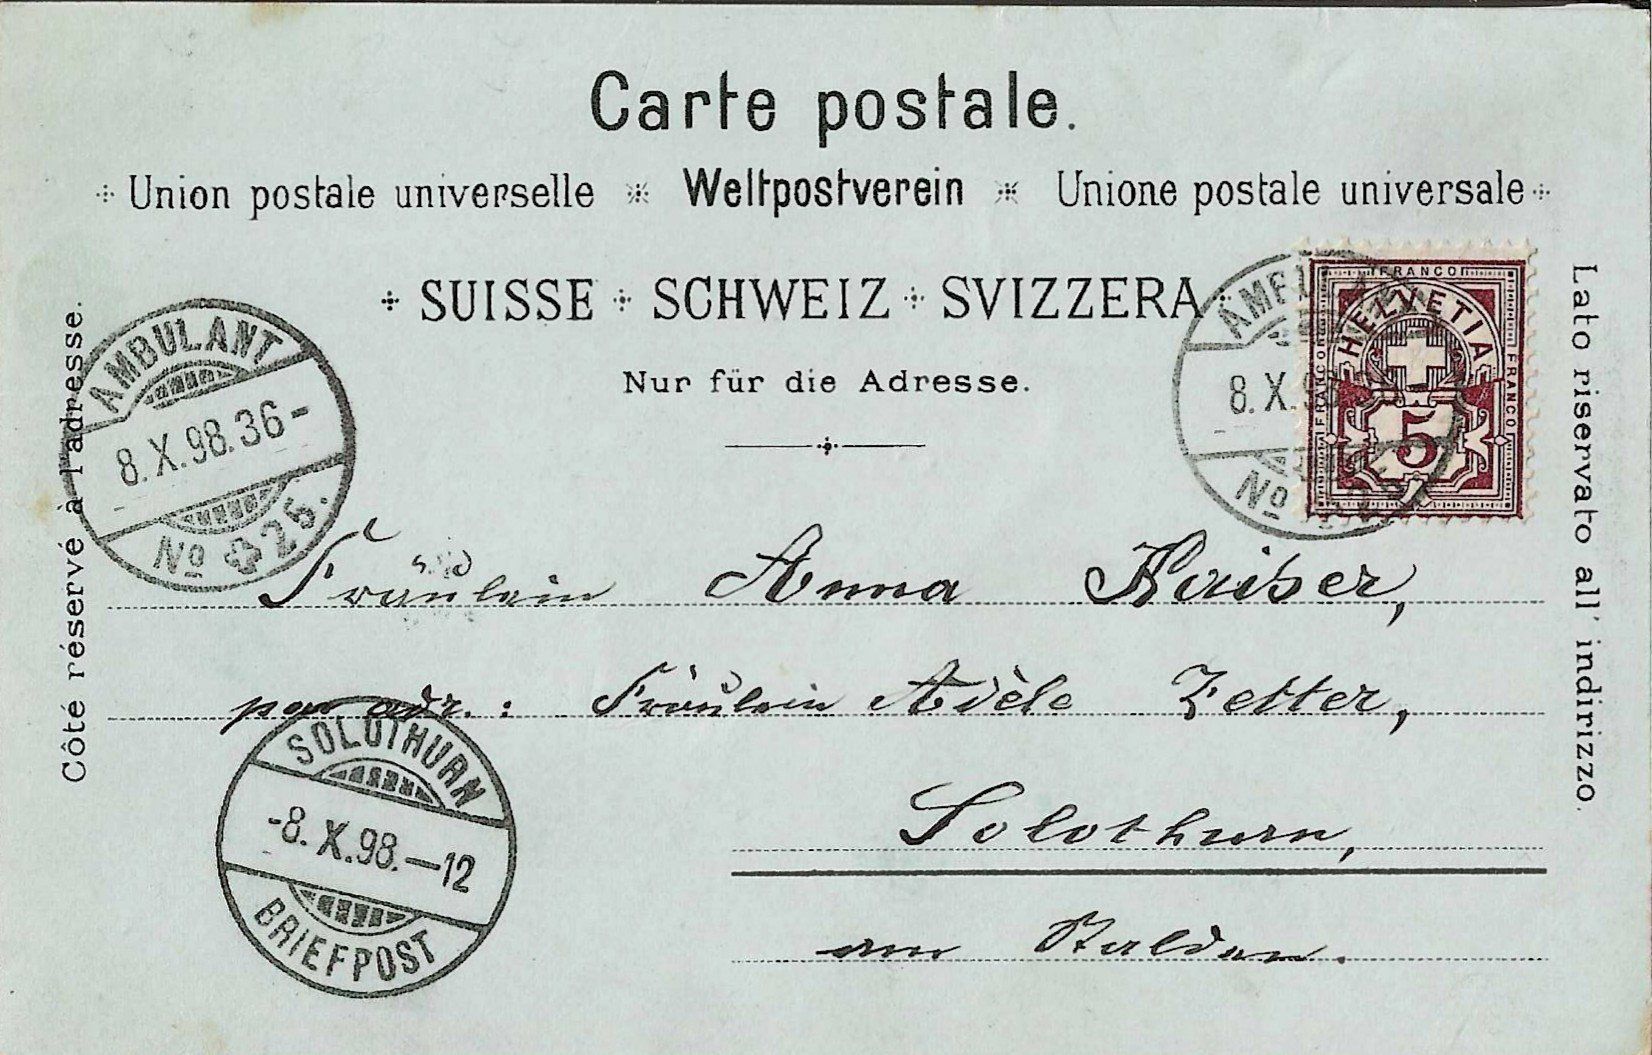 Carte postale.
Union postale universelle Weltpostverein Unione postale universale
SUISSE SCHWEIZ SVIZZERA
Nur für die Adresse.
Côté réservé à l'adresse.
Lato riservato all' indirizzo.
AMBULANT
8.X.98.36-
No 25.
AMBULANT
8.X.98.3
No 25
FRANCO
HELVETIA
FRANCO
FRANCO
5
Fräulein Anna Kaiser,
per adr.: Fräulein Adèle Zetter,
SOLOTHURN
-8.X.98.-12
BRIEFPOST
Solothurn,
am Stalden.